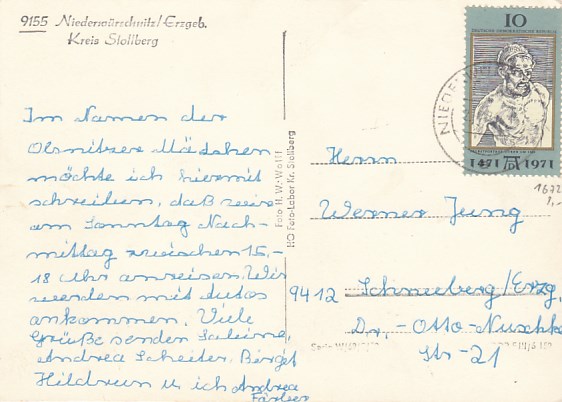 9155 Niederwürschnitz/Erzgeb.
Kreis Stollberg
Im Namen der
Ölsnitzer Mädchen
möchte ich hiermit
schreiben, daß wir
am Sonntag Nach-
mittag zwischen 15,-
18 Uhr anreisen. Wir
werden mit Autos
ankommen. Viele
Grüße senden Sabine,
Andrea Scheiter, Birgit
Hildrun u ich Andrea
Färber
Foto H. W. Wolff
HO Foto-Labor Kr. Stollberg
10
DEUTSCHE DEMOKRATISCHE REPUBLIK
1471 1971
NIEDER
1672
1,-
Herrn
Werner Jung
9412 Schneeberg/Erzg.
Dr.,-Otto-Nuschke
Str-21